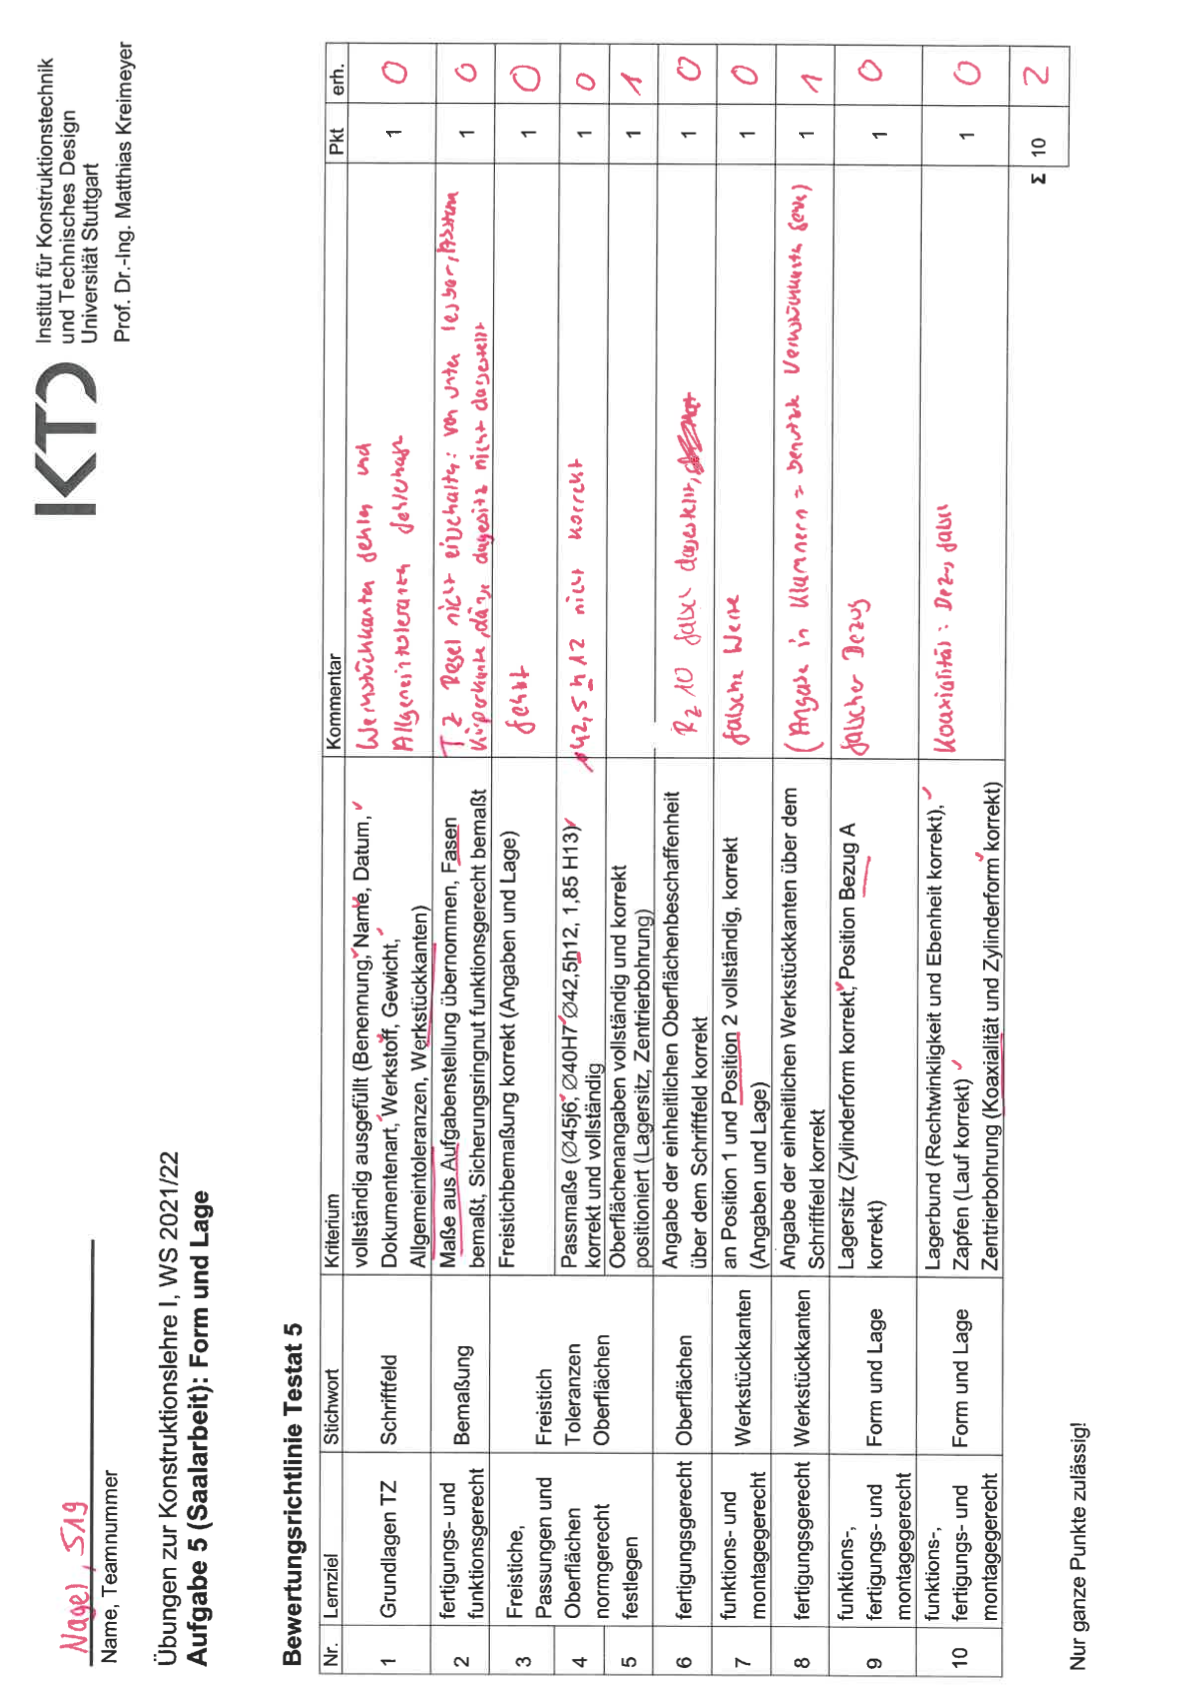 Nagel, S19
Name, Teamnummer
KTD
Institut für Konstruktionstechnik
und Technisches Design
Universität Stuttgart
Prof. Dr.-Ing. Matthias Kreimeyer
Übungen zur Konstruktionslehre I, WS 2021/22
Aufgabe 5 (Saalarbeit): Form und Lage
Bewertungsrichtlinie Testat 5
Nr. Lernziel Stichwort Kriterium Kommentar Pkt erh.
1 Grundlagen TZ Schriftfeld
vollständig ausgefüllt (Benennung, Name, Datum,
Dokumentenart, Werkstoff, Gewicht,
Allgemeintoleranzen, Werkstückkanten)
Werkstückkanten fehlen und
Allgemeintoleranzen fehlerhaft
1 0
2 fertigungs- und
funktionsgerecht
Bemaßung
Maße aus Aufgabenstellung übernommen, Fasen
bemaßt, Sicherungsringnut funktionsgerecht bemaßt
TZ Regel nicht eingehalten: von unten lesbar,
Körperkante, nicht dargestellt
1 0
3 Freistiche,
Passungen und
Oberflächen
normgerecht
festlegen
Freistich
Freistichbemaßung korrekt (Angaben und Lage)
fehlt
1 0
4 Toleranzen
Passmaße (Ø45j6, Ø40H7 Ø42,5h12, 1,85 H13)
korrekt und vollständig
42,5 h 12 nicht korrekt
1 0
5 Oberflächen
Oberflächenangaben vollständig und korrekt
positioniert (Lagersitz, Zentrierbohrung)
1 1
6 fertigungsgerecht Oberflächen
Angabe der einheitlichen Oberflächenbeschaffenheit
über dem Schriftfeld korrekt
Rz 10 falsch dargestellt,
1 0
7 funktions- und
montagegerecht
Werkstückkanten
an Position 1 und Position 2 vollständig, korrekt
(Angaben und Lage)
falsche Werte
1 0
8 fertigungsgerecht Werkstückkanten
Angabe der einheitlichen Werkstückkanten über dem
Schriftfeld korrekt
(Angabe in Klammern = benutzte Werkstückkanten)
1 1
9 funktions-,
fertigungs- und
montagegerecht
Form und Lage
Lagersitz (Zylinderform korrekt, Position Bezug A
korrekt)
falscher Bezug
1 0
10 funktions-,
fertigungs- und
montagegerecht
Form und Lage
Lagerbund (Rechtwinkligkeit und Ebenheit korrekt),
Zapfen (Lauf korrekt)
Zentrierbohrung (Koaxialität und Zylinderform korrekt)
Koaxialität: Bezug falsch
1 0
Σ 10 2
Nur ganze Punkte zulässig!